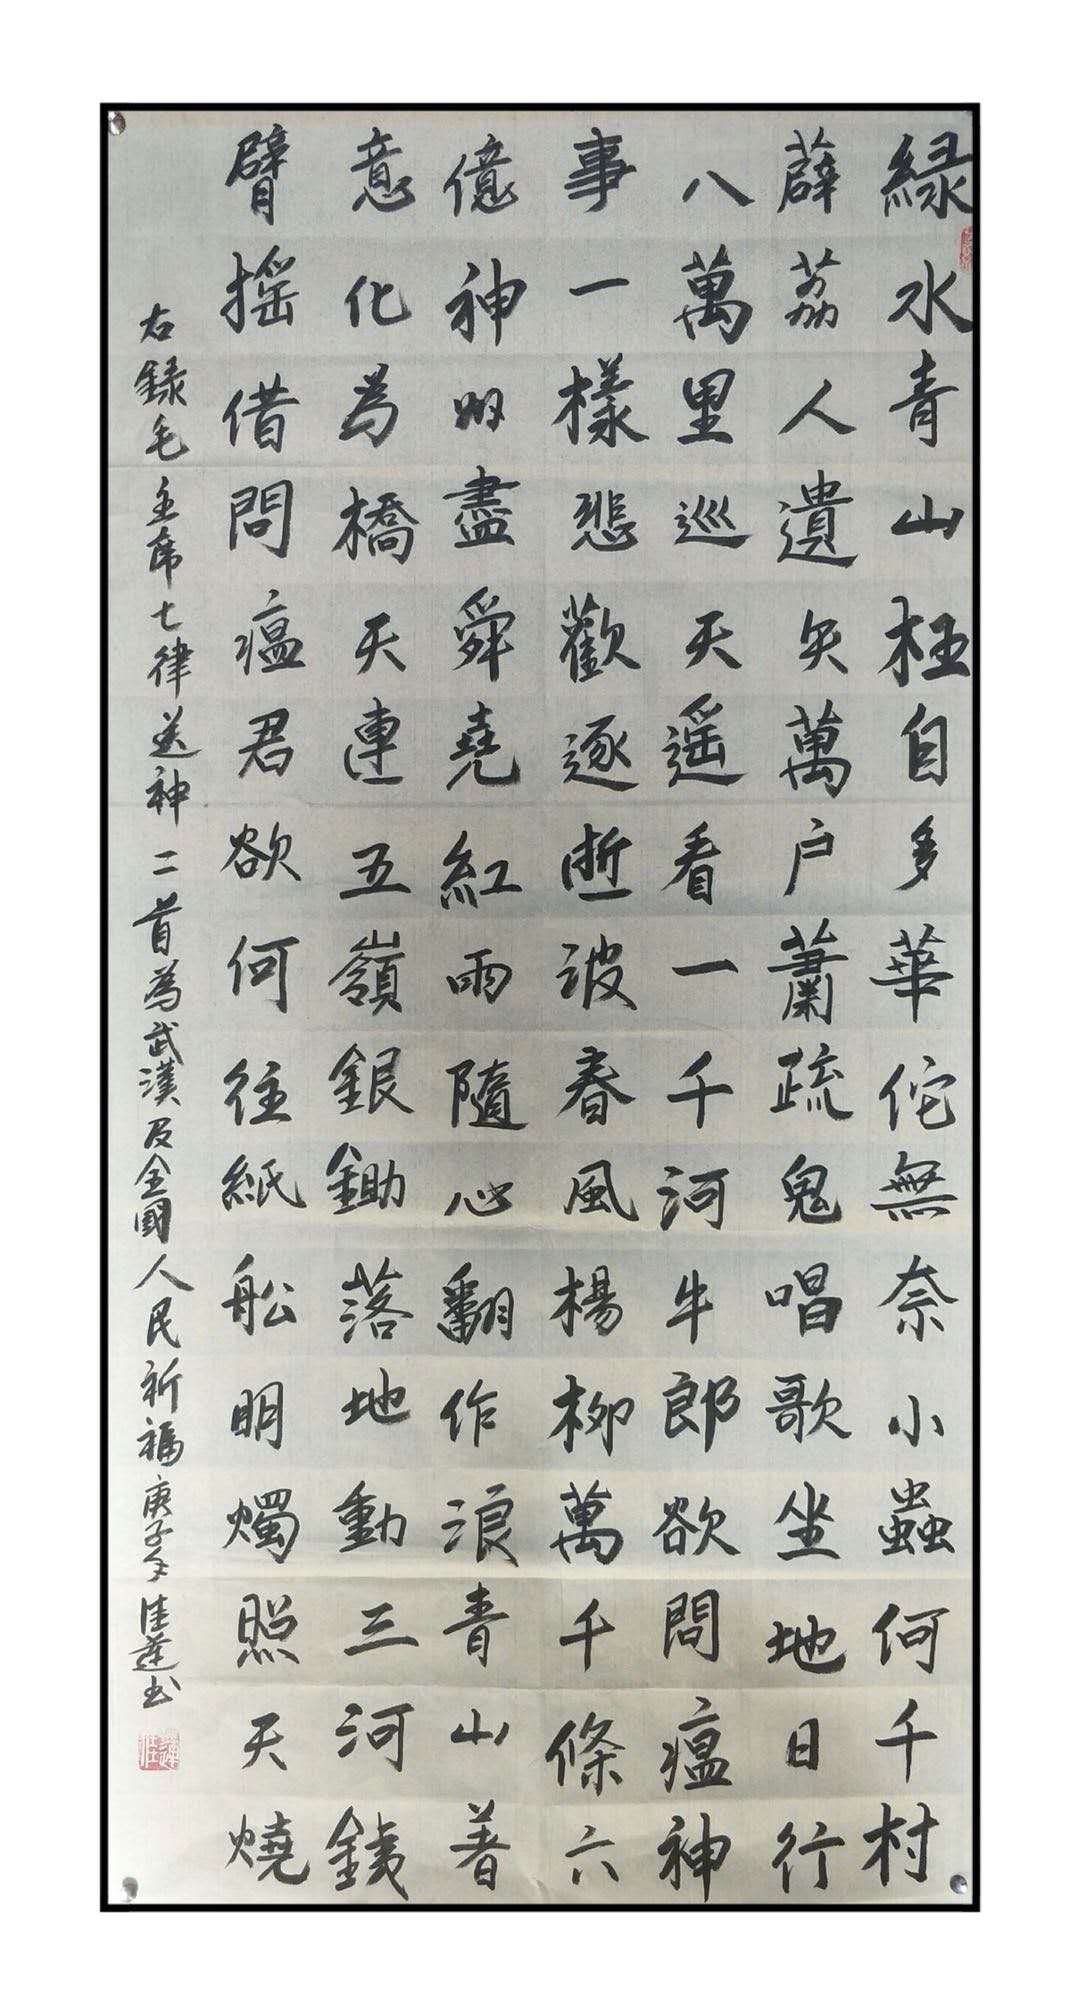 緑水青山枉自多華佗無奈小蟲何千村
薜荔人遺矢萬户蕭疏鬼唱歌坐地日行
八萬里巡天遥看一千河牛郎欲問瘟神
事一樣悲歡逐逝波春風楊柳萬千條六
億神州盡舜堯紅雨隨心翻作浪青山著
意化為橋天連五嶺銀鋤落地動三河銕
臂摇借問瘟君欲何往紙船明燭照天燒
右録毛主席七律送神二首為武漢及全國人民祈福庚子年佳蓮书